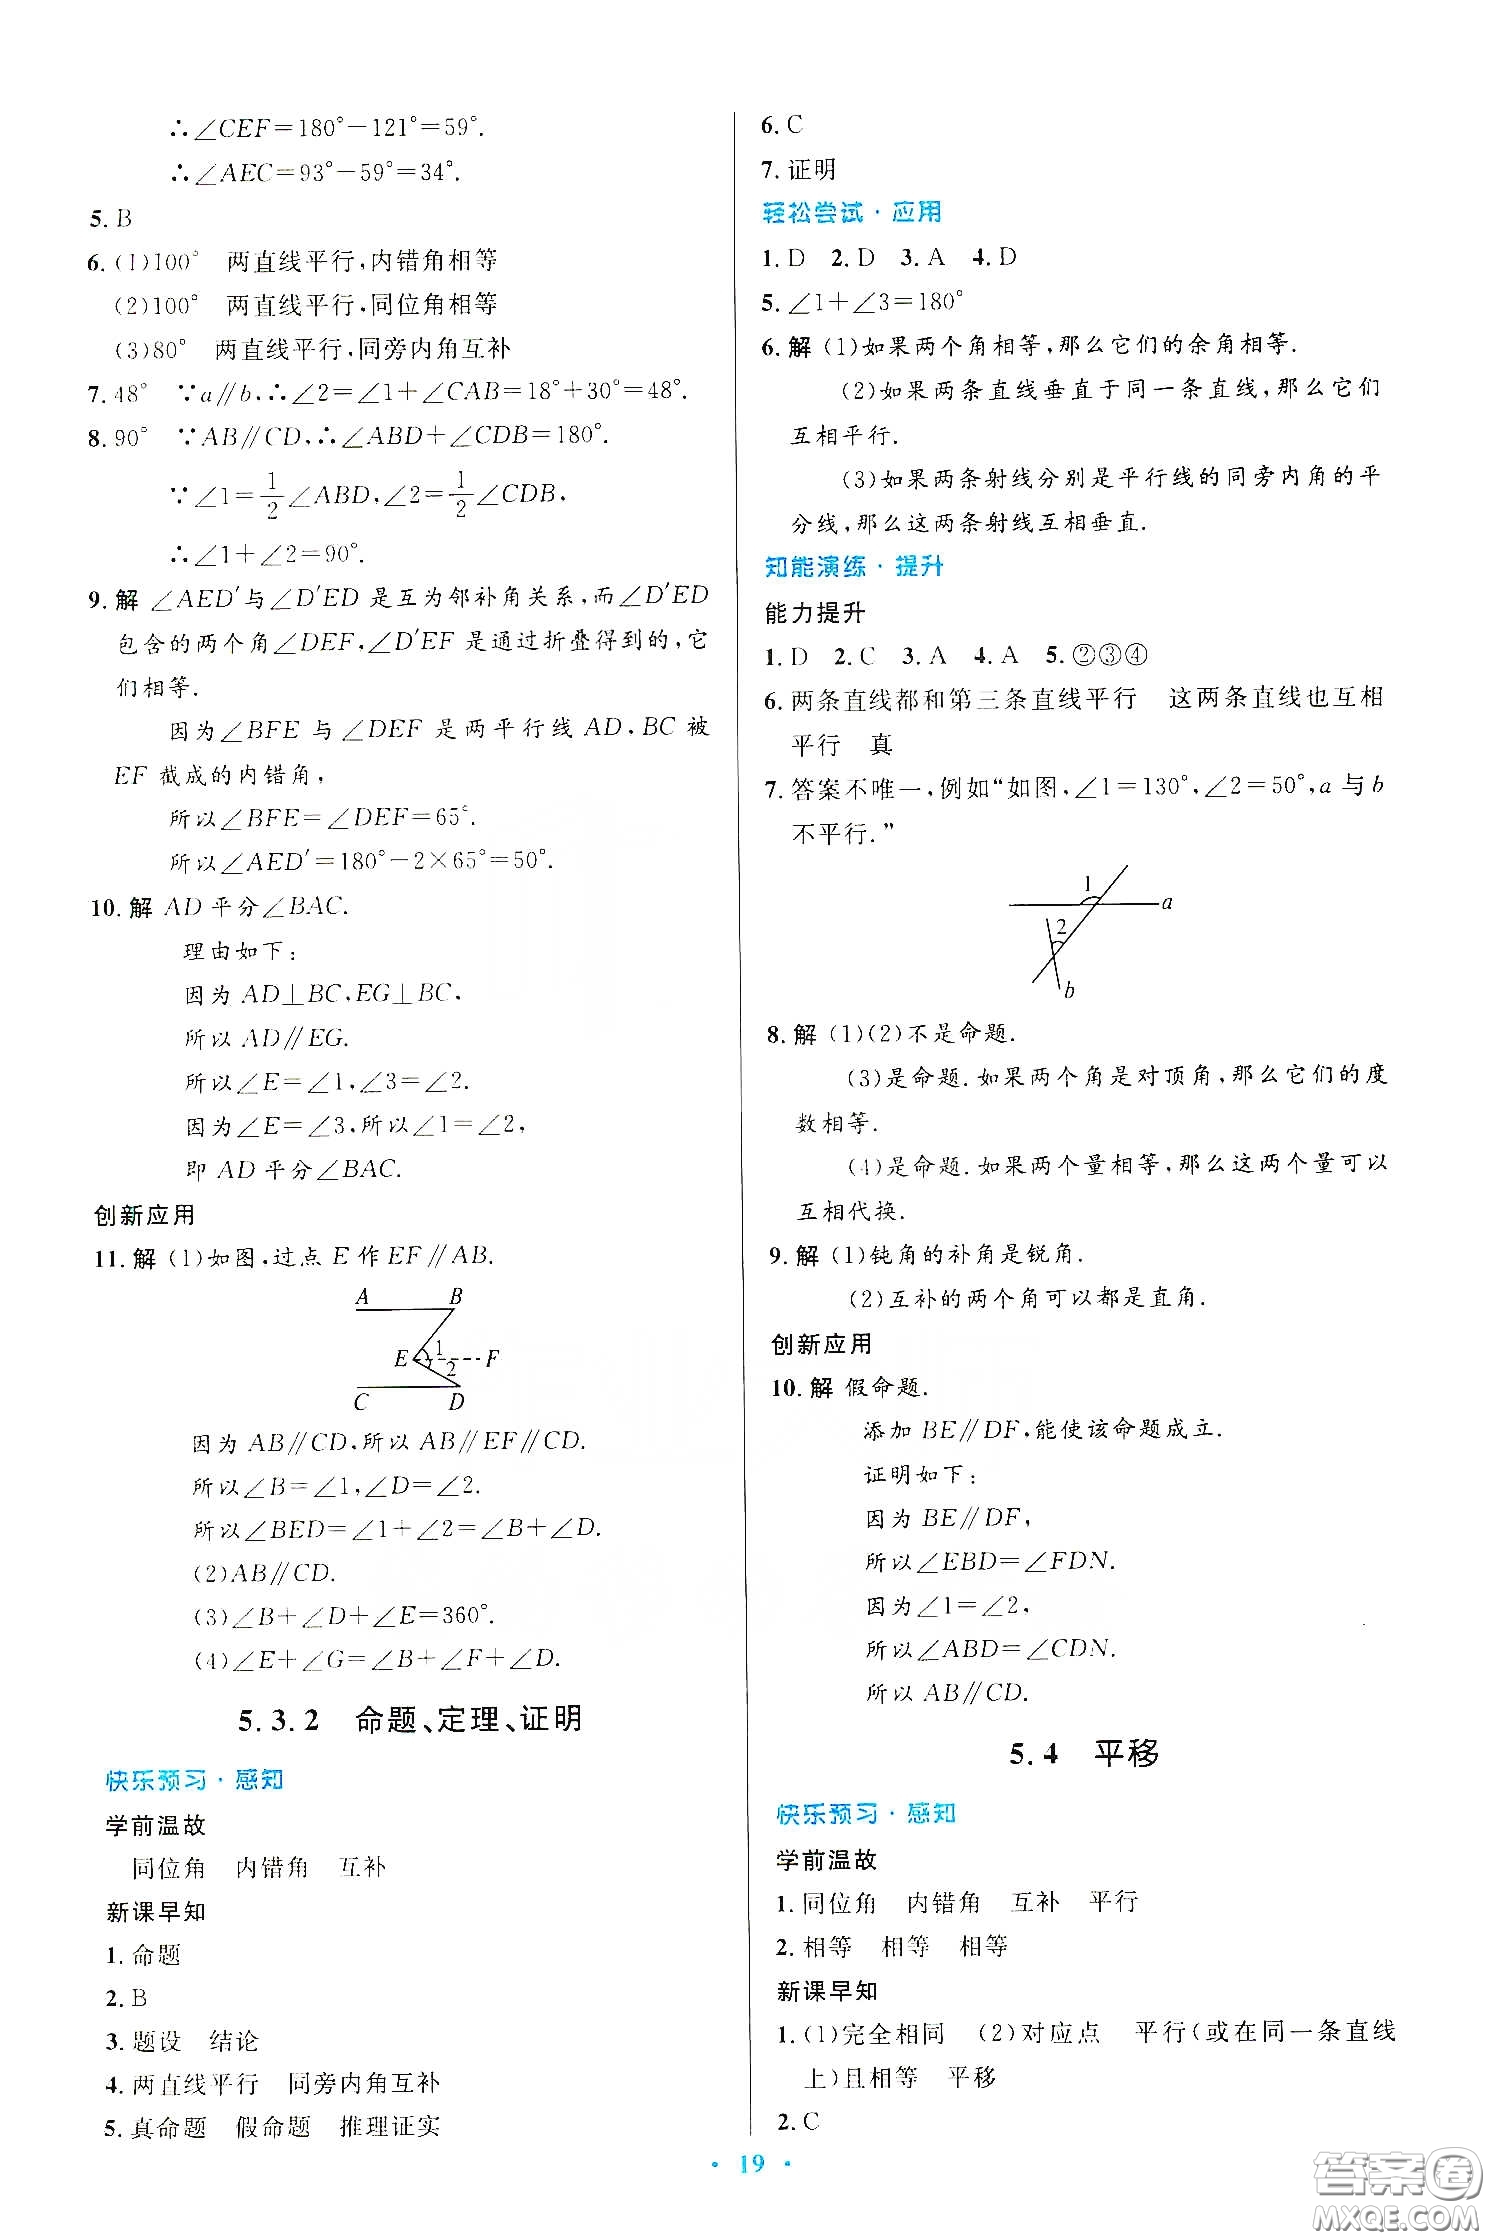 ∴∠CEF=180°-121°=59°.
∴∠AEC=93°-59°=34°.
5. B
6. (1)100° 两直线平行,内错角相等
(2)100° 两直线平行,同位角相等
(3)80° 两直线平行,同旁内角互补
7. 48° ∵a∥b,∴∠2=∠1+∠CAB=18°+30°=48°.
8. 90° ∵AB∥CD,∴∠ABD+∠CDB=180°.
∵∠1=1/2∠ABD,∠2=1/2∠CDB,
∴∠1+∠2=90°.
9. 解 ∠AED′与∠D′ED是互为邻补角关系,而∠D′ED
包含的两个角∠DEF,∠D′EF是通过折叠得到的,它
们相等.
因为∠BFE与∠DEF是两平行线AD,BC被
EF截成的内错角,
所以∠BFE=∠DEF=65°.
所以∠AED′=180°-2×65°=50°.
10. 解 AD平分∠BAC.
理由如下:
因为AD⊥BC,EG⊥BC,
所以AD∥EG.
所以∠E=∠1,∠3=∠2.
因为∠E=∠3,所以∠1=∠2,
即AD平分∠BAC.
创新应用
11. 解 (1)如图,过点E作EF∥AB.
A B
E 1 2 F
C D
因为AB∥CD,所以AB∥EF∥CD.
所以∠B=∠1,∠D=∠2.
所以∠BED=∠1+∠2=∠B+∠D.
(2)AB∥CD.
(3)∠B+∠D+∠E=360°.
(4)∠E+∠G=∠B+∠F+∠D.
5.3.2 命题、定理、证明
快乐预习·感知
学前温故
同位角 内错角 互补
新课早知
1. 命题
2. B
3. 题设 结论
4. 两直线平行 同旁内角互补
5. 真命题 假命题 推理证实
6. C
7. 证明
轻松尝试·应用
1. D 2. D 3. A 4. D
5. ∠1+∠3=180°
6. 解 (1)如果两个角相等,那么它们的余角相等.
(2)如果两条直线垂直于同一条直线,那么它们
互相平行.
(3)如果两条射线分别是平行线的同旁内角的平
分线,那么这两条射线互相垂直.
知能演练·提升
能力提升
1. D 2. C 3. A 4. A 5. ②③④
6. 两条直线都和第三条直线平行 这两条直线也互相
平行 真
7. 答案不唯一,例如“如图,∠1=130°,∠2=50°,a与b
不平行.”
1
a
2
b
8. 解 (1)(2)不是命题.
(3)是命题.如果两个角是对顶角,那么它们的度
数相等.
(4)是命题.如果两个量相等,那么这两个量可以
互相代换.
9. 解 (1)钝角的补角是锐角.
(2)互补的两个角可以都是直角.
创新应用
10. 解 假命题.
添加BE∥DF,能使该命题成立.
证明如下:
因为BE∥DF,
所以∠EBD=∠FDN.
因为∠1=∠2,
所以∠ABD=∠CDN.
所以AB∥CD.
5.4 平移
快乐预习·感知
学前温故
1. 同位角 内错角 互补 平行
2. 相等 相等 相等
新课早知
1. (1)完全相同 (2)对应点 平行(或在同一条直线
上)且相等 平移
2. C
· 19 ·
答案卷
MXQE.COM